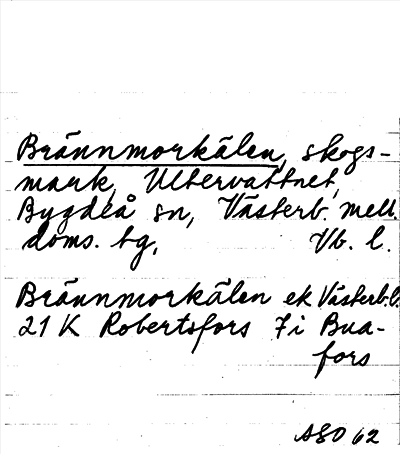 Brännmorkälen, skogs-
mark, Ultervattnet,
Bygdeå sn, Västerb. mell.
doms. tg, Vb. l.
Brännmorkälen ek Västerb.l.
21 K Robertsfors 7i Bua-
fors
ASO 62